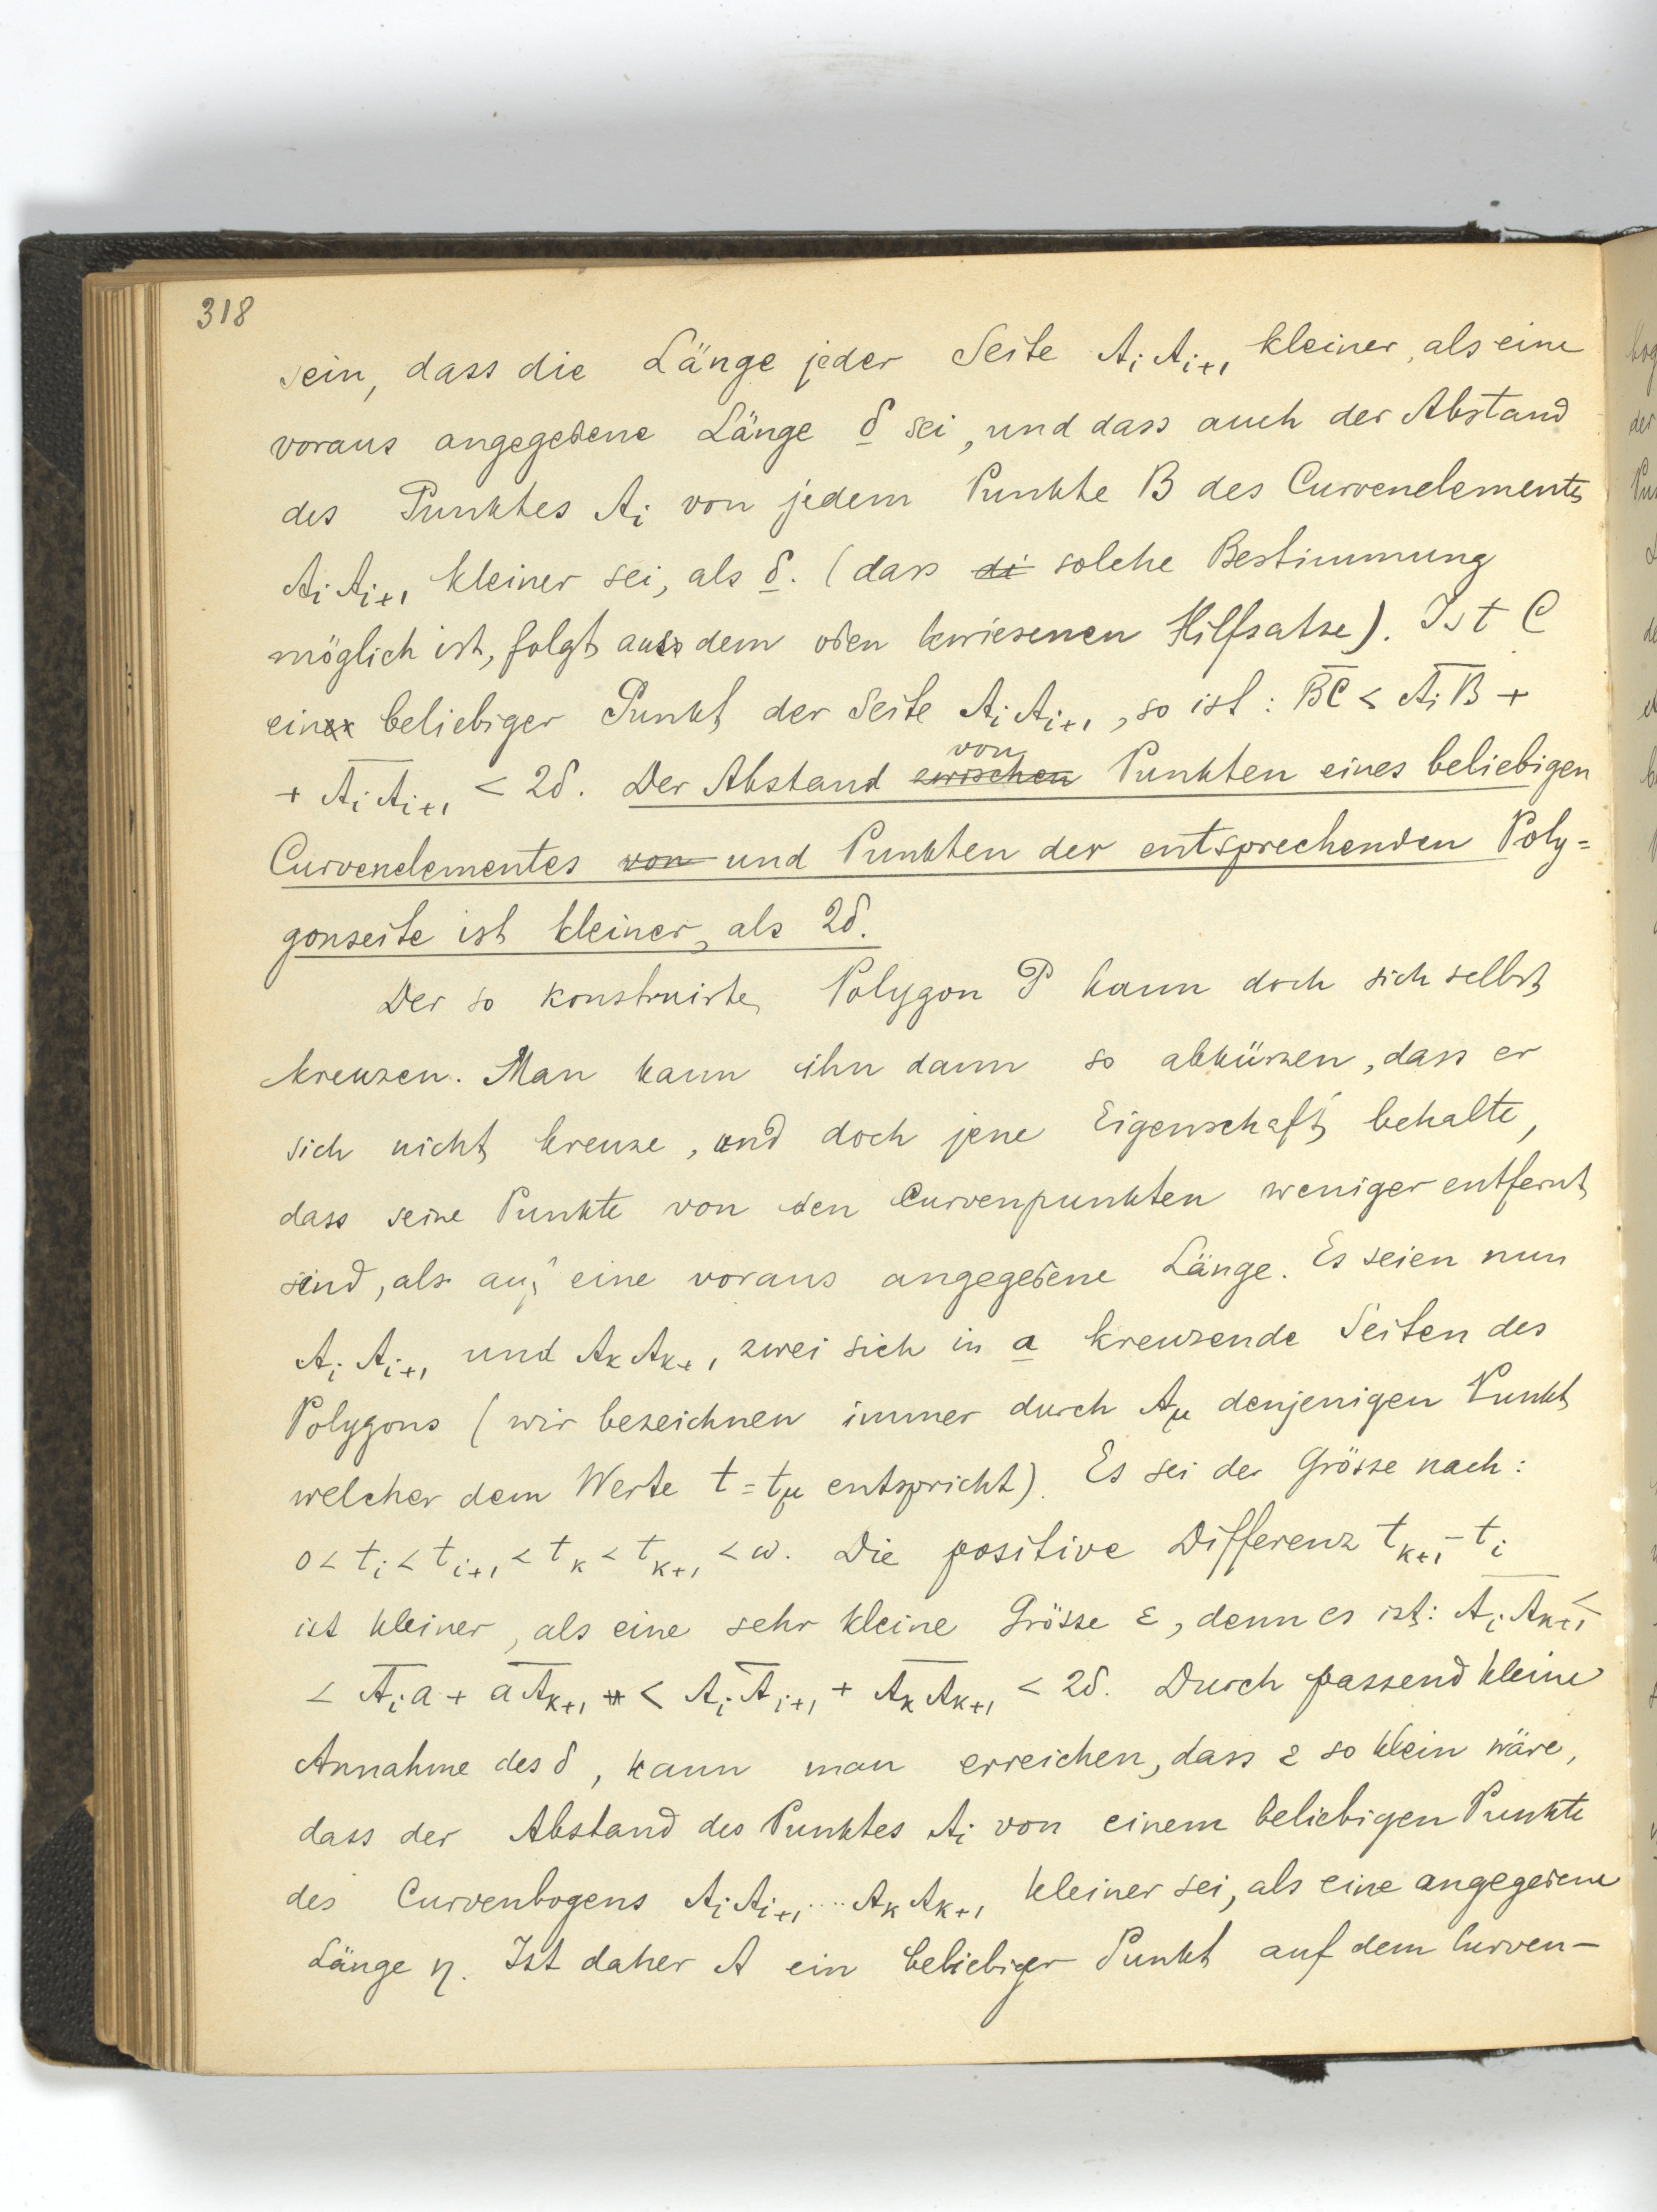 318
sein, dass die Länge jeder Seite AᵢAᵢ₊₁ kleiner, als eine
voraus angegebene Länge δ sei, und dass auch der Abstand
des Punktes Aᵢ von jedem Punkte B des Curvenelements
AᵢAᵢ₊₁ kleiner sei, als δ. (dass di solche Bestimmung
möglich ist, folgt aus dem oben bewiesenen Hilfsatze). Ist C
ein beliebiger Punkt der Seite AᵢAᵢ₊₁, so ist: BC < AᵢB +
+ AᵢAᵢ₊₁ < 2δ. Der Abstand zwischen von Punkten eines beliebigen
Curvenelementes von und Punkten der entsprechenden Poly=
gonseite ist kleiner, als 2δ.
Der so konstruirte Polygon P kann doch sich selbst
kreuzen. Man kann ihn dann so abkürzen, dass er
sich nicht kreuze, und doch jene Eigenschaft behalte,
dass seine Punkte von den Curvenpunkten weniger entfernt
sind, als auf eine voraus angegebene Länge. Es seien nun
AᵢAᵢ₊₁ und AₖAₖ₊₁ zwei sich in a kreuzende Seiten des
Polygons (wir bezeichnen immer durch A_μ denjenigen Punkt
welcher dem Werte t = t_μ entspricht). Es sei der Grösse nach:
0 < tᵢ < tᵢ₊₁ < tₖ < tₖ₊₁ < ω. Die positive Differenz tₖ₊₁ - tᵢ
ist kleiner, als eine sehr kleine Grösse ε, denn es ist: AᵢAₖ₊₁ <
< Aᵢa + aAₖ₊₁ < AᵢAᵢ₊₁ + AₖAₖ₊₁ < 2δ. Durch passend kleine
Annahme des δ, kann man erreichen, dass ε so klein wäre,
dass der Abstand des Punktes Aᵢ von einem beliebigen Punkte
des Curvenbogens AᵢAᵢ₊₁....AₖAₖ₊₁ kleiner sei, als eine angegebene
Länge η. Ist daher A ein beliebiger Punkt auf dem Curven-